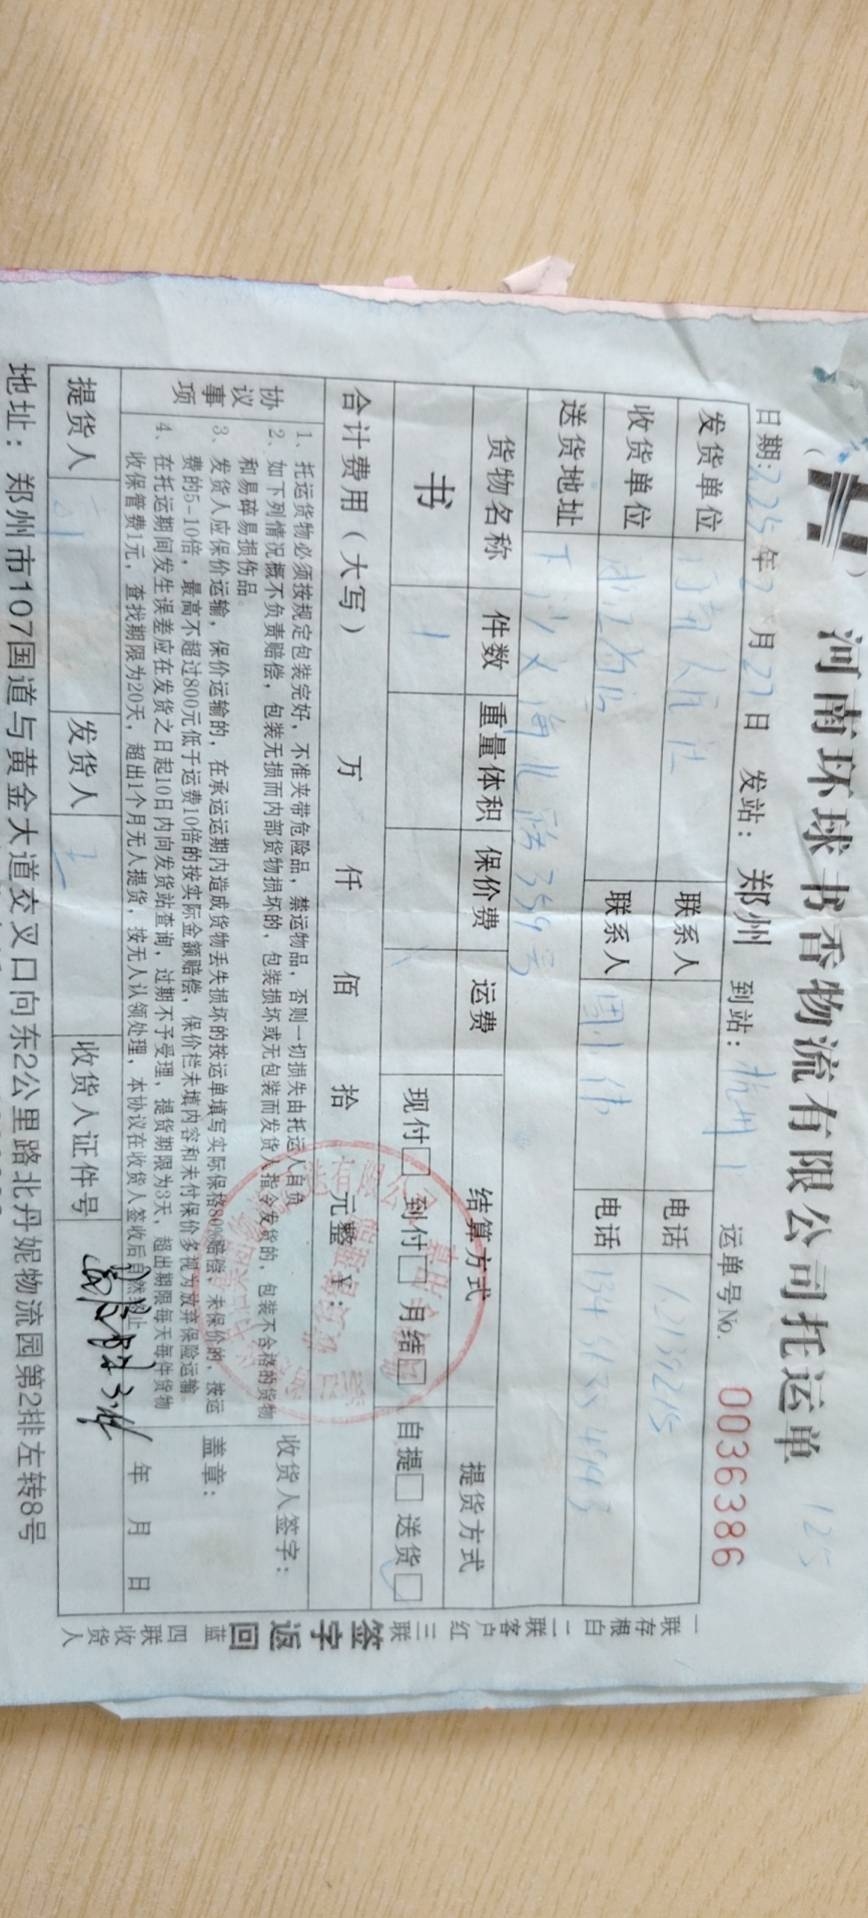 河南环球书香物流有限公司托运单
125
日期:225年2月27日 发站：郑州 到站：杭州 运单号No. 0036386
发货单位 河南 联系人 电话
收货单位 浙江 联系人 周伟 电话
送货地址 359号
货物名称 件数 重量体积 保价费 运费 结算方式 提货方式
书 1 现付□ 到付□ 月结□ 自提□ 送货□
合计费用（大写） 万 仟 佰 拾 元整 ￥：
协议事项
1、托运货物必须按规定包装完好，不准夹带危险品，禁运物品，否则一切损失由托运人自负
2、如下列情况概不负责赔偿，包装无损而内部货物损坏的，包装损坏或无包装而发货人指令发货的，包装不合格的货物
和易碎易损伤品
3、发货人应保价运输，保价运输的，在承运运期内造成货物丢失损坏的按运单填写实际保格80%赔偿，未保价的，按运
费的5-10倍，最高不超过800元低于运费10倍的按实际金额赔偿，保价栏未填内容和未付保价多视为放弃保险运输
4、在托运期间发生误差应在发货之日起10日内向发货站查询，过期不予受理，提货期限为3天，超出期限每天每件货物
收保管费1元，查找期限为20天，超出1个月无人提货，按无人认领处理，本协议在收货人签收后自然终止
收货人签字：
盖章：
年 月 日
提货人 发货人 收货人证件号
地址：郑州市107国道与黄金大道交叉口向东2公里路北丹妮物流园第2排左转8号
一联存根白 二联客户红 三联签字返回蓝 四联收货人